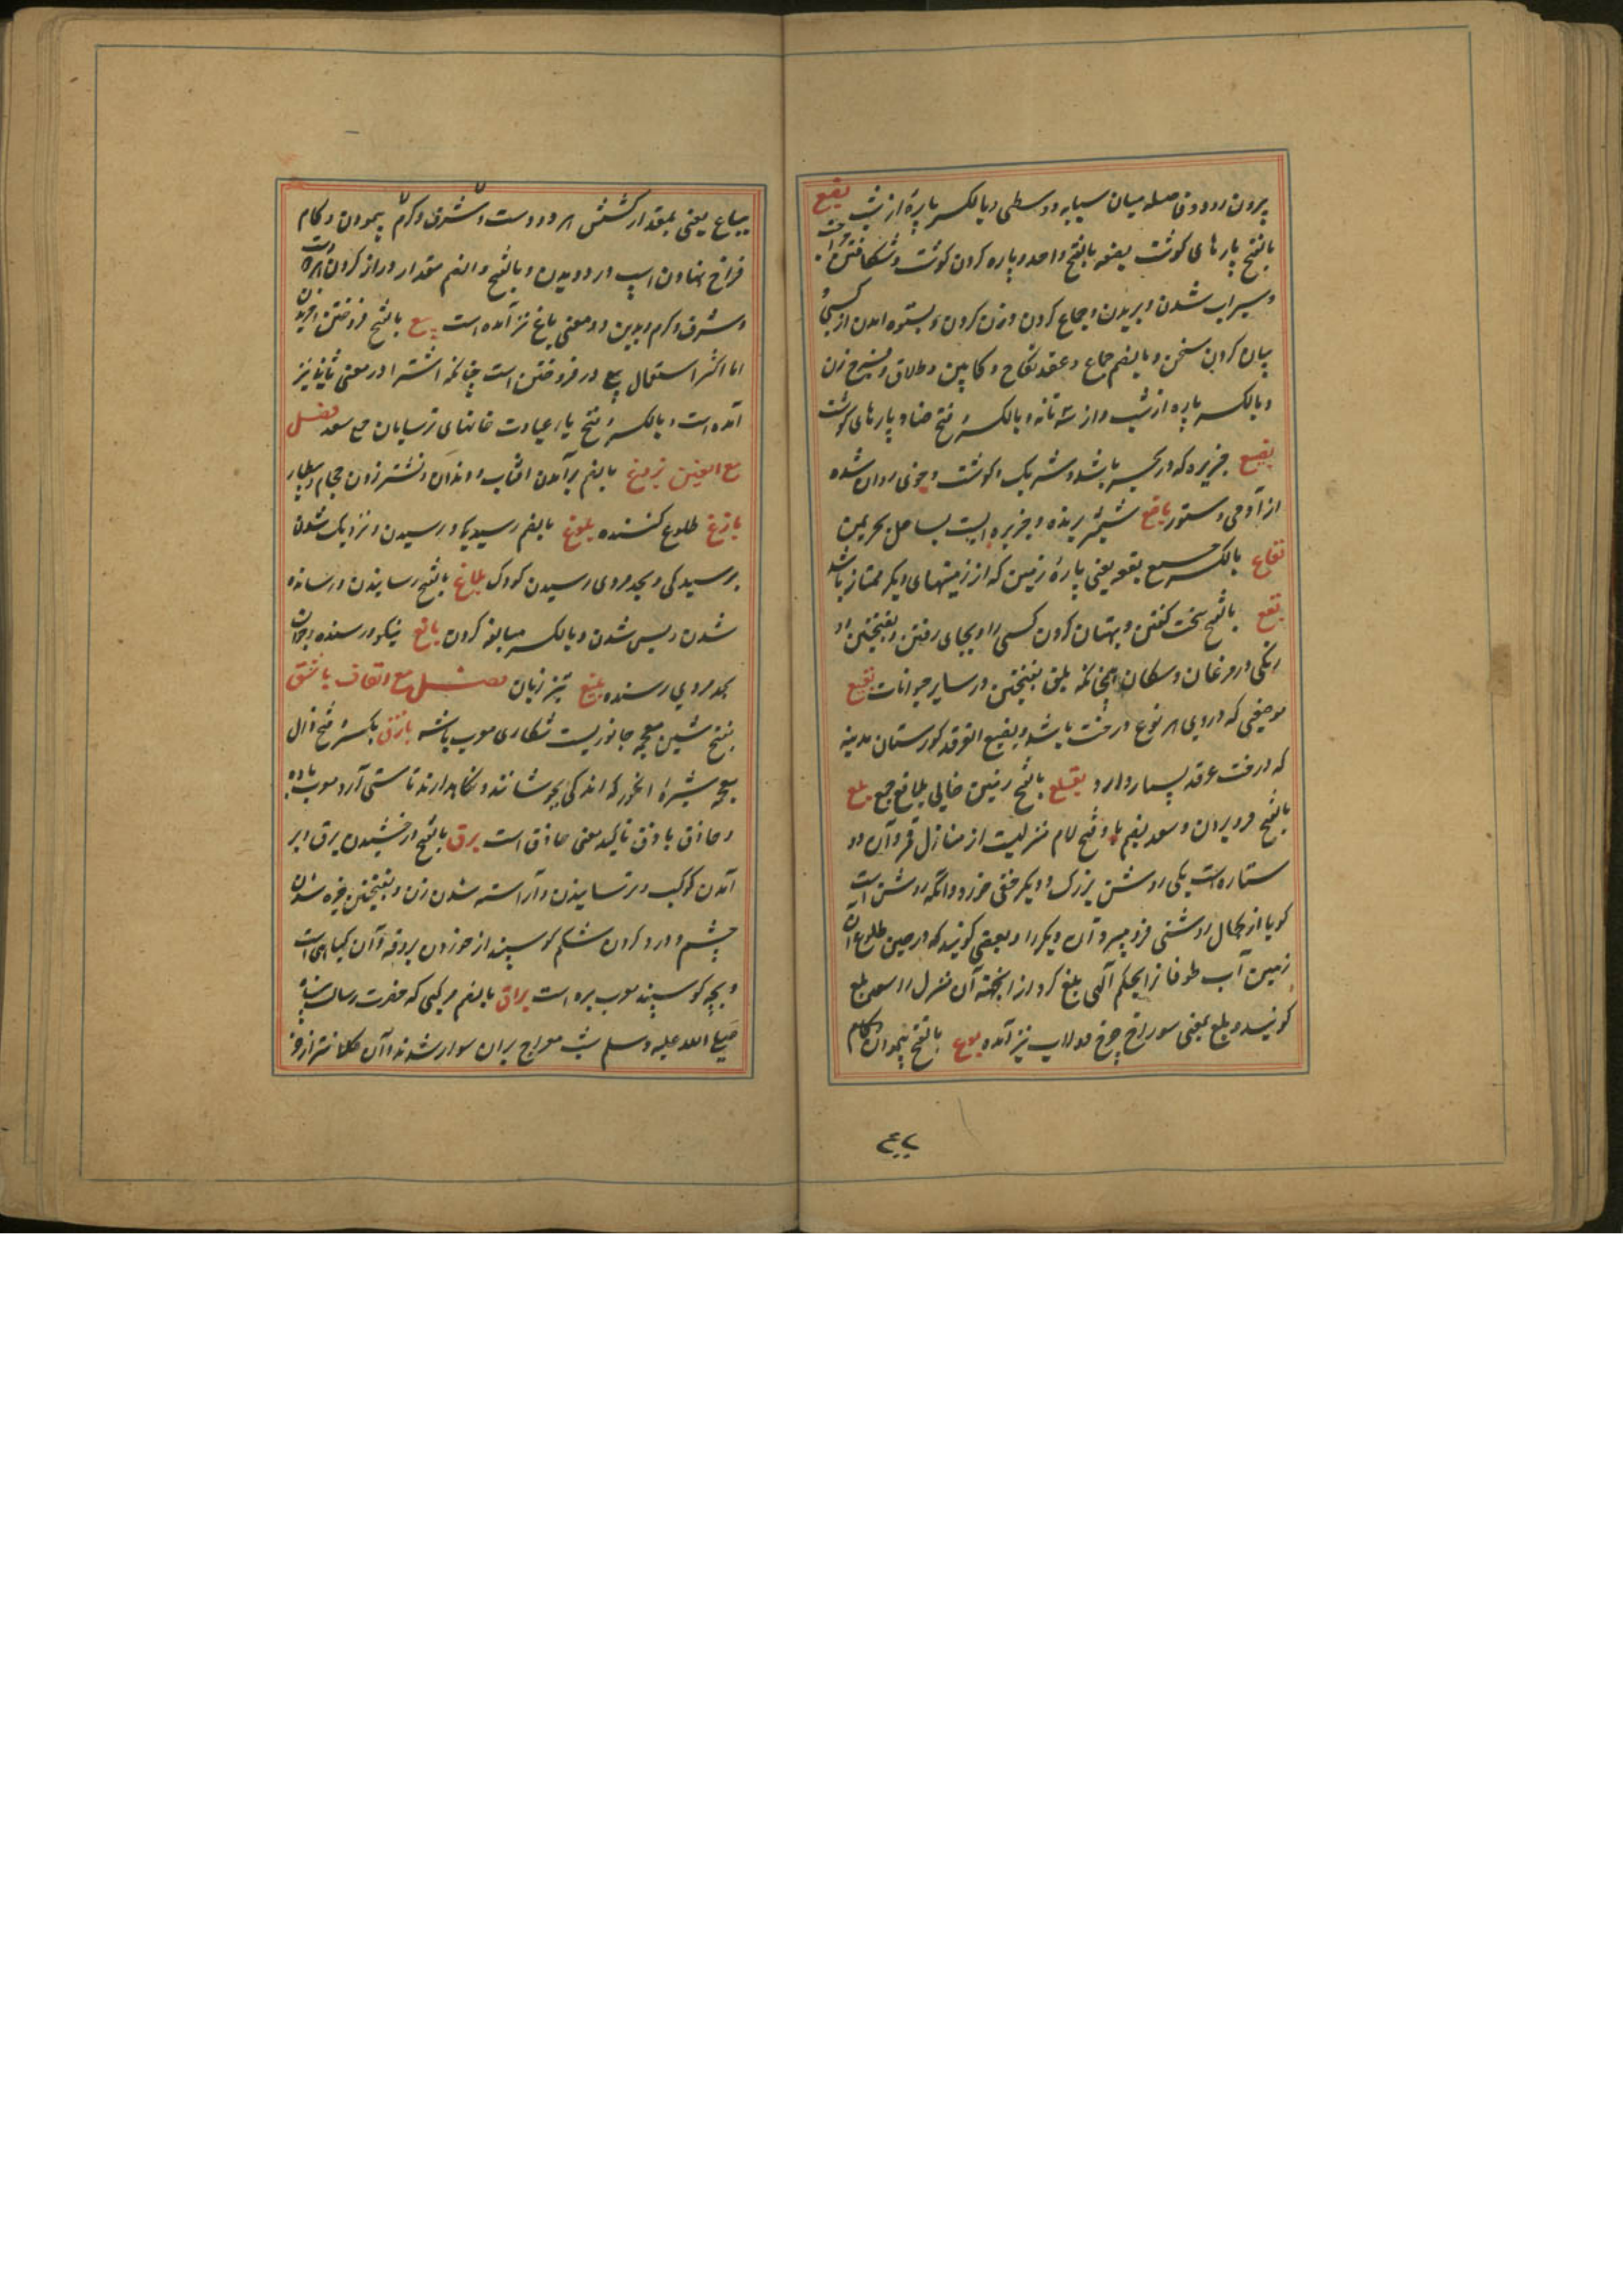 بیرون رود و فاصله میان سبابه و وسطی و بالکسر پارهٔ از شب بضع
بالفتح پارهای کوشت بضعه بالفتح واحد و پاره کردن کوشت و شکافتن جراحت
و سیراب شدن و بریدن و جماع کردن و زن کردن و بستوه امدن از کسی و
بیان کردن سخن و بالضم جماع و عقد نکاح و کابین و طلاق و فرج زن
و بالکسر پاره از شب و از سه تا نه و بالکسر و فتح ضاد پارهای کوشت
بضیع جزیره که در بحر باشد و شریک و کوشت و خوی روان شده
از آدمی و ستور باضع شمشیر برنده و جزیره ایست بساحل بحر یمن
بقاع بالکسر جمع بقعه یعنی پارهٔ زمین که از زمینهای دیکر ممتاز باشد
بقع بالفتح سخت کفتن و بهتان کردن کسی را و بجای رفتن و بفتحتین دو
رنکی در مرغان و سکان چنانکه بلق بفتحتین در سایر حیوانات بقیع
موضعی که در وی هر نوع درخت باشد و بقیع الغرقد کورستان مدینه
که درخت غرقد بسیار دارد بلقع بالفتح زمین خالی بلاقع جمع بلع
بالفتح فرو بردن و سعد بضم با و فتح لام منزلیست از منازل قمر و آن دو
ستاره است یکی روشن بزرک و دیکر خفی خرد و انکه روشن است
کویا از کمال روشنی فرو میبرد آن دیکر را و بعضی کویند که در حین طلوع ان
زمین آب طوفانرا بحکم آلهی بلع کرد از انجهت آن منزل را سعد بلع
کویند و بلع بمعنی سوراخ چرخ دولاب نیز آمده بوع بالفتح پیمودن و کام
بباع یعنی بمقدار کشش هر دو دست و شرف و کرم پیمودن و کام
فراخ نهادن اسپ در دویدن و بالفتح و الضم مقدار دراز کردن هر دو دست
و شرف و کرم و بدین دو معنی باع نیز آمده است بیع بالفتح فروختن و خریدن
اما اکثر استعمال بیع در فروختن است چنانکه اشترا در معنی ثانی نیز
آمده است و بالکسر و فتح یا عبادت خانهای ترسایان جمع بیعه فصل
مع الغین بزوغ بالضم برآمدن افتاب و دندان و نشتر زدن حجام و بیطار
بازغ طلوع کننده بلوغ بالضم رسیدکی و رسیدن و نزدیک شدن
برسیدکی و بحد مردی رسیدن کودک بلاغ بالفتح رسانیدن و رسانده
شدن و بس شدن و بالکسر مبالغه کردن بالغ نیکو و رسنده و جوان
بحد مردی رسنده بلیغ تیز زبان فصل مع القاف باشق
بفتح شین معجمه جانوریست شکاری معرب باشه باذق بکسر و فتح ذال
معجمه شیرهٔ انکور که اندکی بجوشانند و نکاهدارند تا مستی آرد معرب باده
و حاذق باذق تاکید معنی حاذق است برق بالفتح درخشیدن برق و بر
آمدن کوکب و ترسانیدن و آراسته شدن زن و بفتحتین خیره شدن
چشم و درد کردن شکم کوسپند از خوردن بروقه و آن کیاهی است
و بچه کوسپند معرب بره است براق بالضم مرکبی که حضرت رسالت پناه
صلی الله علیه و سلم شب معراج بران سوار شدند و آن کلانتر از خر
۴۲